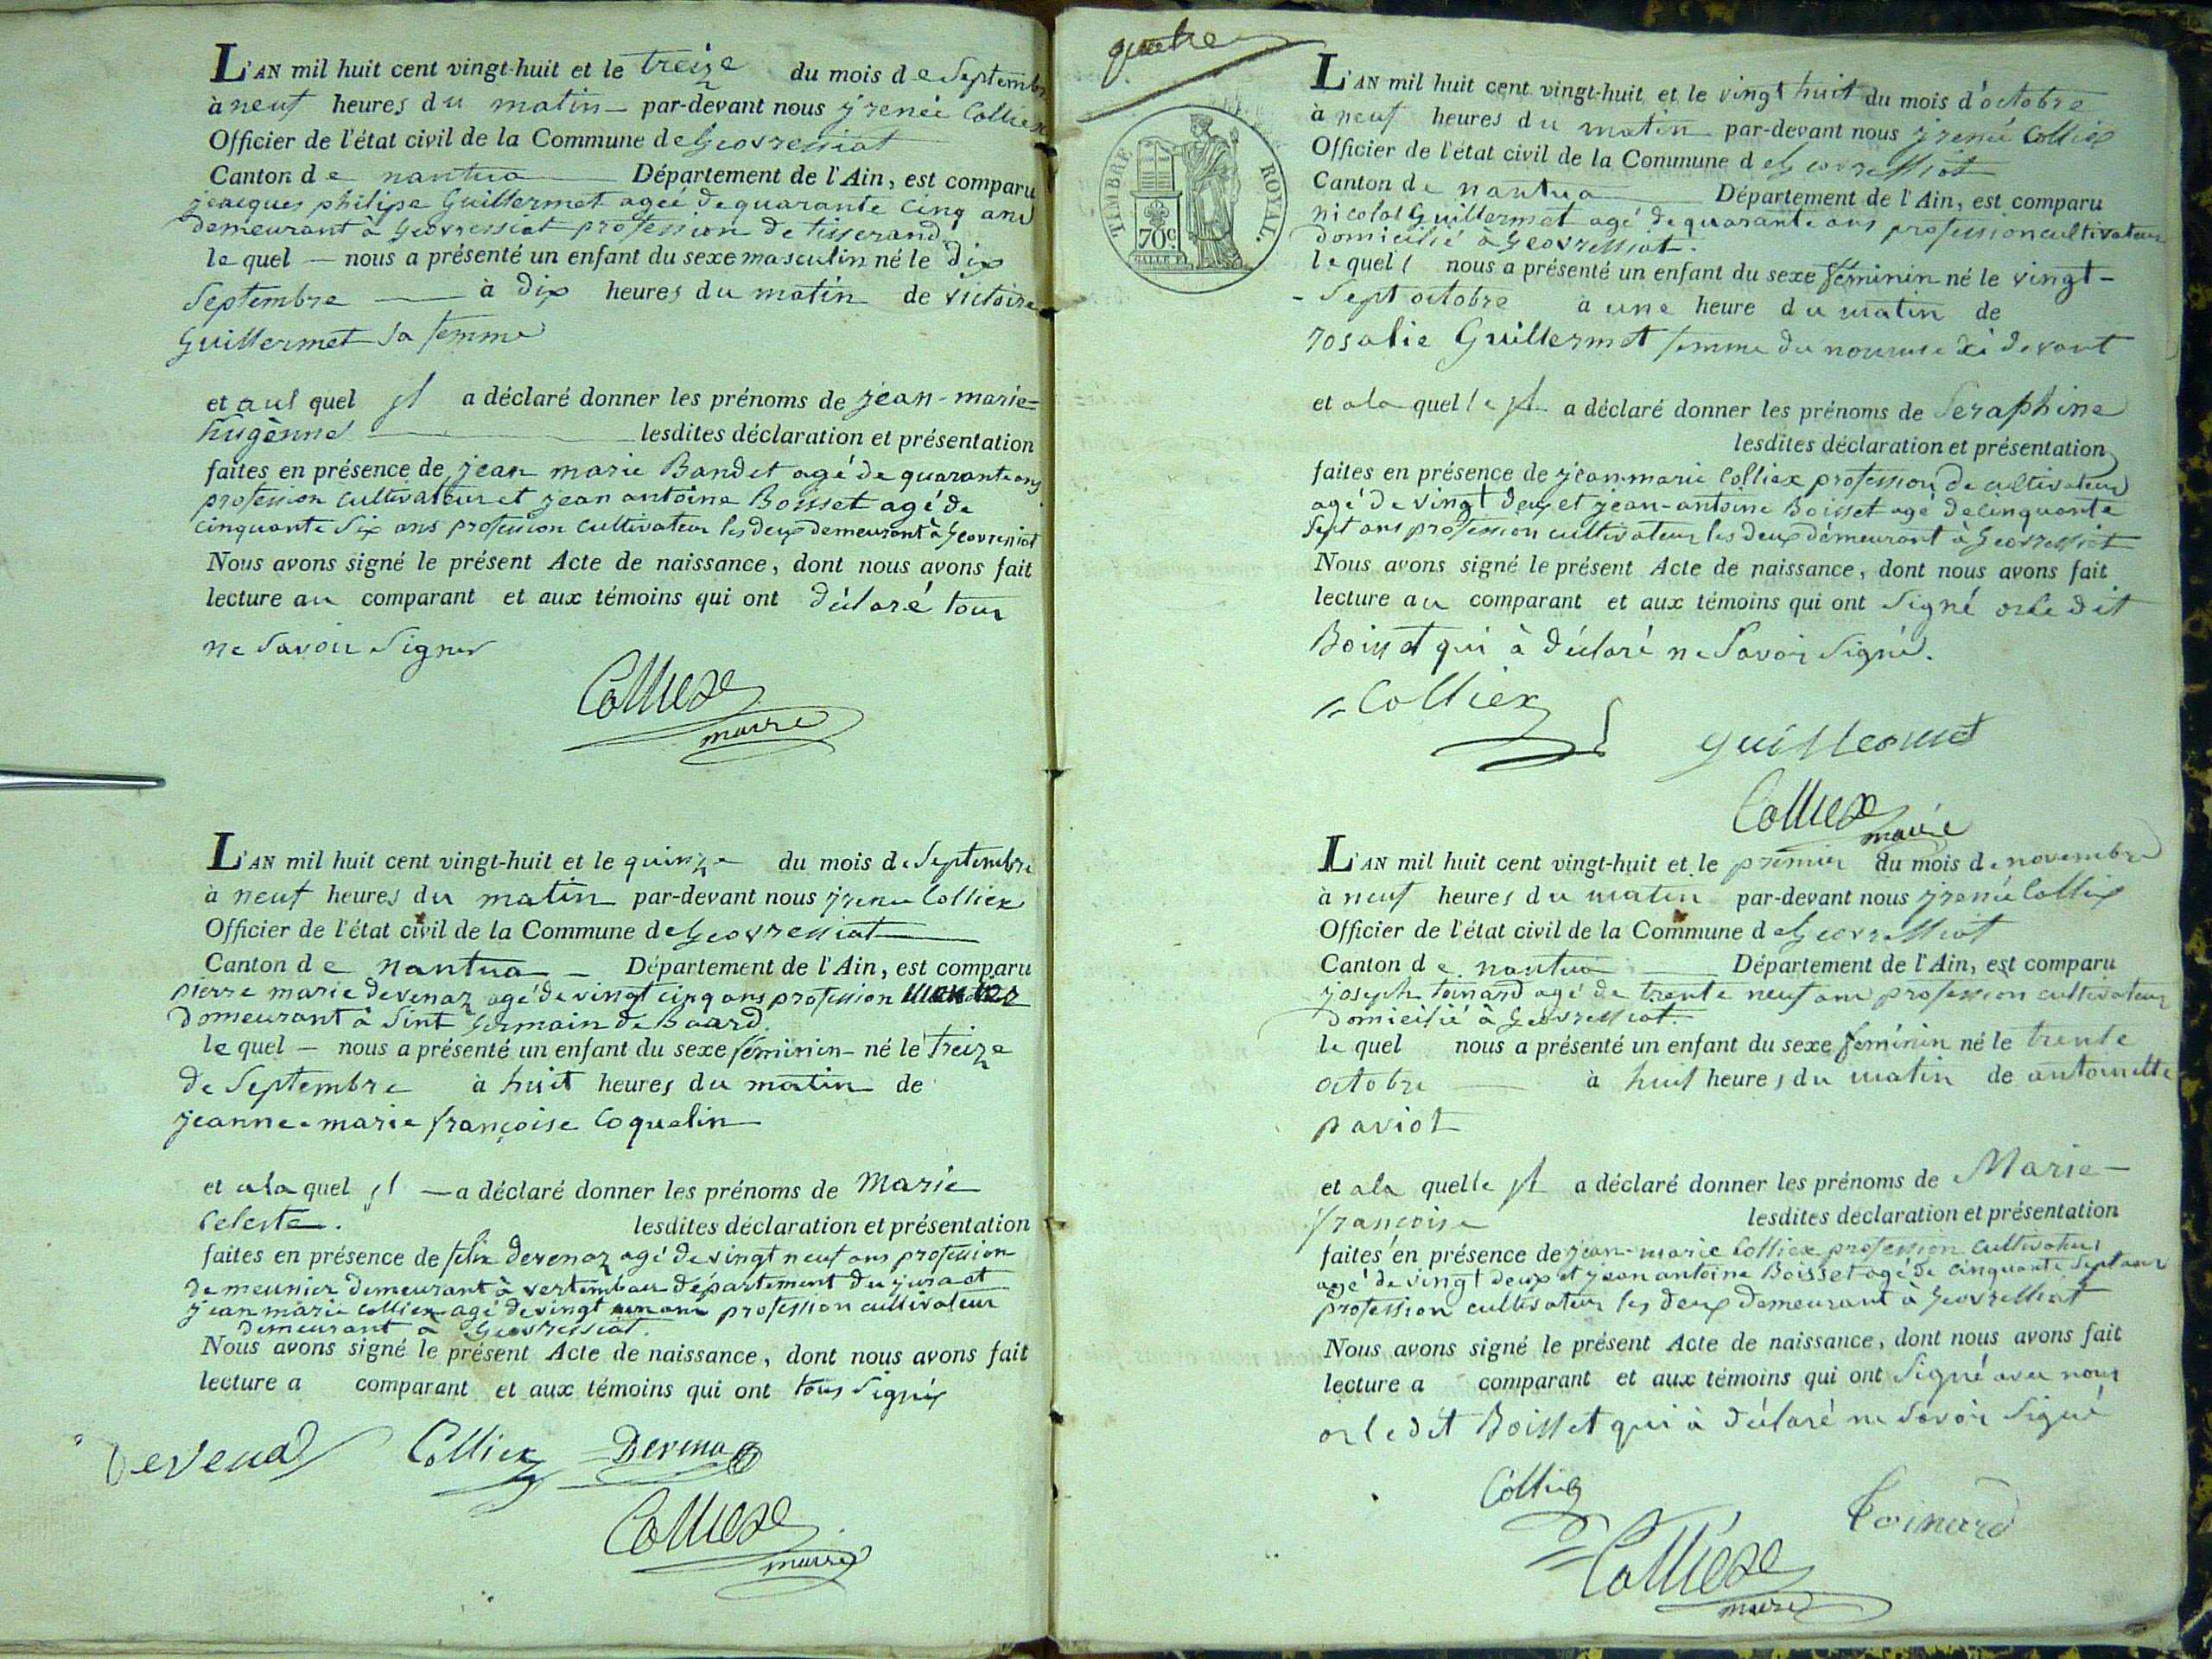 L'AN mil huit cent vingt-huit et le treize du mois de Septembre
à neuf heures du matin par-devant nous jrenée Colliex
Officier de l'état civil de la Commune de Geovressiat
Canton de nantua Département de l'Ain, est comparu
jeacques philipe Guillermet ageé de quarante cinq ans
demeurant à Geovressiat profession de tisserand
le quel — nous a présenté un enfant du sexe masculin né le dix
Septembre — à dix heures du matin de victoire
Guillermet sa femme
et auquel jl a déclaré donner les prénoms de jean-marie-
hugènne lesdites déclaration et présentation
faites en présence de jean marie Bandet agé de quarante ans
profession cultivateur et jean antoine Boisset agé de
cinquante Six ans profession cultivateur les deux demeurant à Geovressiat
Nous avons signé le présent Acte de naissance, dont nous avons fait
lecture au comparant et aux témoins qui ont déclaré tous
ne Savoir Signer
Colliex
maire
L'AN mil huit cent vingt-huit et le quinze du mois de Septembre
à neuf heures du matin par-devant nous jrenee Colliex
Officier de l'état civil de la Commune de Geovressiat
Canton de nantua — Département de l'Ain, est comparu
pierre marie devenaz agé de vingt cinq ans profession
domeurant à Sint Germain de Baard.
le quel — nous a présenté un enfant du sexe féminin né le treize
de Septembre à huit heures du matin de
jeanne-marie françoise Coquelin
et ala quel jl — a déclaré donner les prénoms de Marie
Celeste. lesdites déclaration et présentation
faites en présence de felix devenaz agé de vingt neuf ans profession
de meunier demeurant à département du jura et
jean marie Colliex agé de vingt ans profession cultivateur
demeurant a Geovressiat.
Nous avons signé le présent Acte de naissance, dont nous avons fait
lecture a comparant et aux témoins qui ont tous Signés
Devenaz Colliex Devenaz
Colliex
maire
quatre
TIMBRE ROYAL.
70c.
L'AN mil huit cent vingt-huit et le vingt huit du mois d'octobre
à neuf heures du matin par-devant nous jrenée Colliex
Officier de l'état civil de la Commune de Geovressiat
Canton de nantua Département de l'Ain, est comparu
nicolas Guillermet agé de quarante ans profession cultivateur
domicilié à Geovressiat.
le quel nous a présenté un enfant du sexe féminin né le vingt-
-Sept octobre à une heure du matin de
rosalie Guillermet femme du nommé ci devant
et ala quelle jl a déclaré donner les prénoms de Seraphine
lesdites déclaration et présentation
faites en présence de jean marie Colliex profession de cultivateur
agé de vingt deux et jean-antoine Boisset agé de cinquante
Sept ans profession cultivateur les deux démeurant à Geovressiat
Nous avons signé le présent Acte de naissance, dont nous avons fait
lecture au comparant et aux témoins qui ont Signé or le dit
Boisset qui à déclaré ne Savoir Signé.
Colliex
guillermet
Colliex
maire
L'AN mil huit cent vingt-huit et le premier du mois de novembre
à neuf heures du matin par-devant nous jrenée Colliex
Officier de l'état civil de la Commune de Geovressiat
Canton de nantua Département de l'Ain, est comparu
joseph toinard agé de trente neuf ans profession cultivateur
domicilié à Geovressiat.
le quel nous a présenté un enfant du sexe féminin né le trente
octobre à huit heures du matin de antoinette
paviot
et ala quelle jl a déclaré donner les prénoms de Marie-
françoise lesdites déclaration et présentation
faites en présence de jean-marie Colliex profession cultivateur
agé de vingt deux et jean antoine Boisset agé de cinquante Sept ans
profession cultivateur les deux demeurant a Geovressiat
Nous avons signé le présent Acte de naissance, dont nous avons fait
lecture a comparant et aux témoins qui ont Signé avec nous
or le dit Boisset qui à déclaré ne Savoir Signé
Colliex
toinard
Colliex
maire